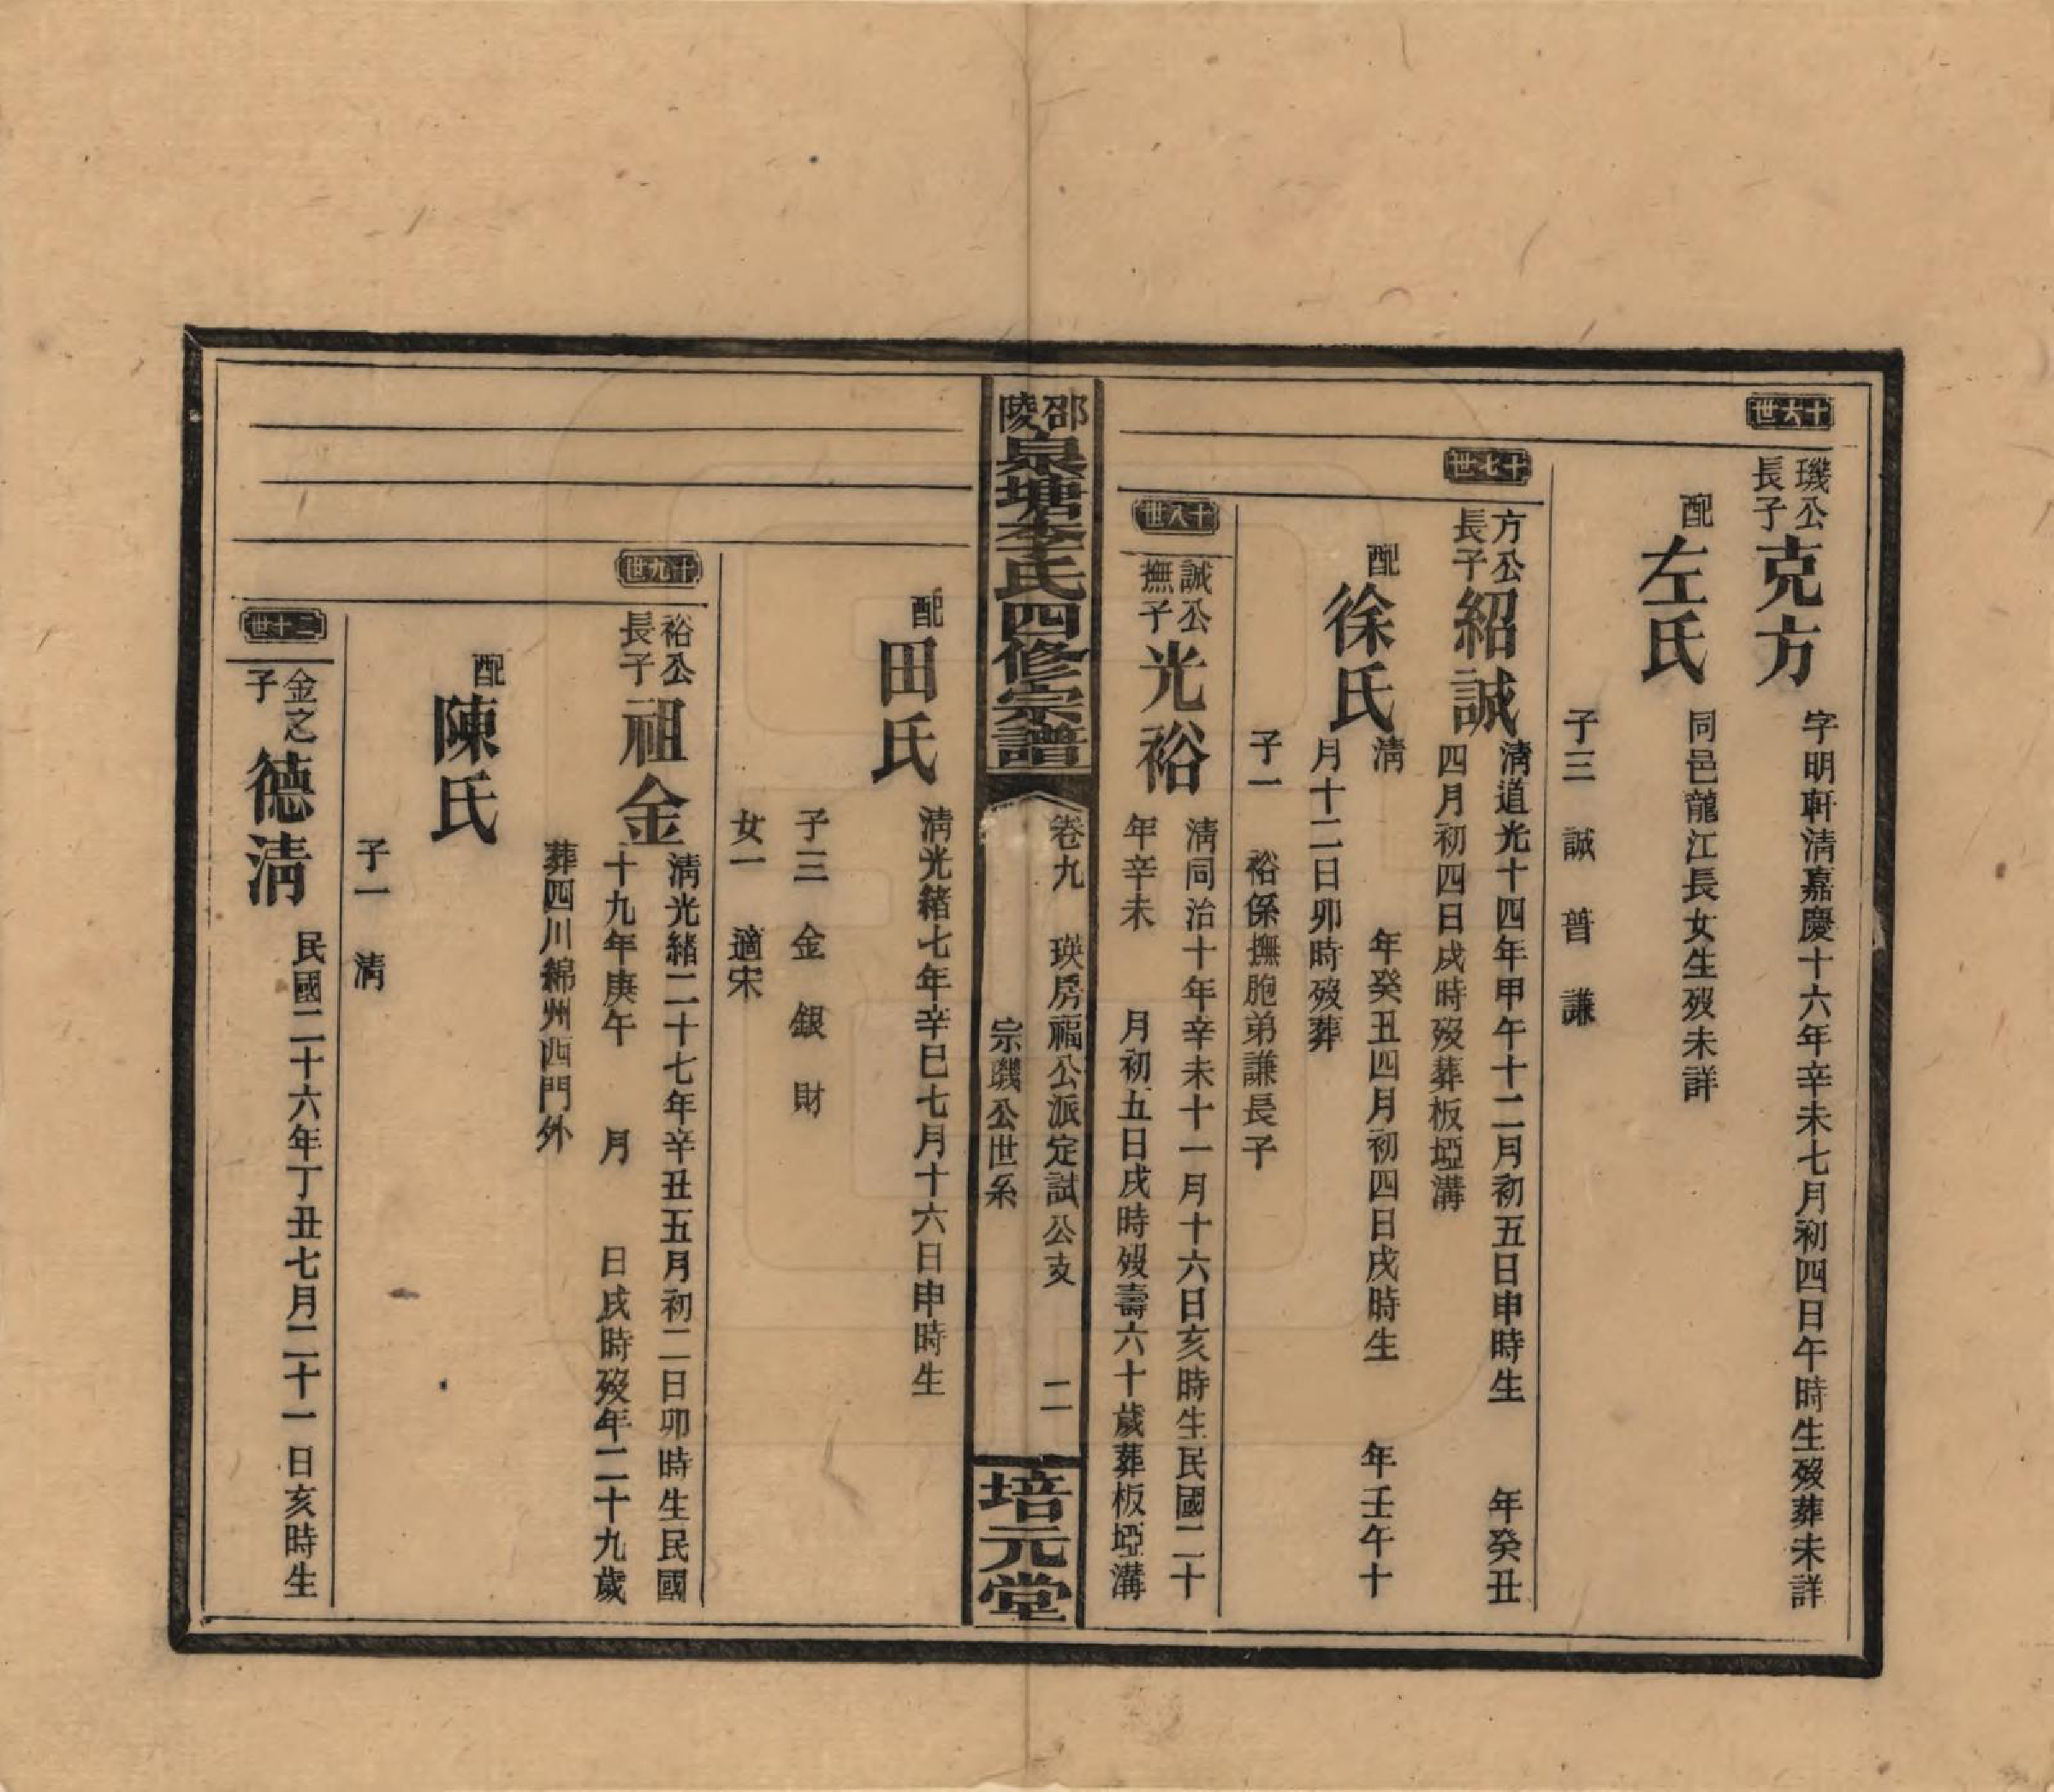 十六世
璣公
長子
克方
字明軒清嘉慶十六年辛未七月初四日午時生歿葬未詳
配
左氏
同邑龍江長女生歿未詳
子三 誠 普 謙
十七世
方公
長子
紹誠
清道光十四年甲午十二月初五日申時生 年癸丑
四月初四日戌時歿葬板埡溝
配
徐氏
清 年癸丑四月初四日戌時生 年壬午十
月十二日卯時歿葬
子一 裕係撫胞弟謙長子
十八世
誠公
撫子
光裕
清同治十年辛未十一月十六日亥時生民國二十
年辛未 月初五日戌時歿壽六十歲葬板埡溝
邵陵
泉塘李氏四修宗譜
卷九 瑛房福公派定試公支 二
宗璣公世系
培元堂
配
田氏
清光緒七年辛巳七月十六日申時生
子三 金 銀 財
女一 適宋
十九世
裕公
長子
祖金
清光緒二十七年辛丑五月初二日卯時生民國
十九年庚午 月 日戌時歿年二十九歲
葬四川綿州西門外
配
陳氏
子一 清
二十世
金之
子
德清
民國二十六年丁丑七月二十一日亥時生